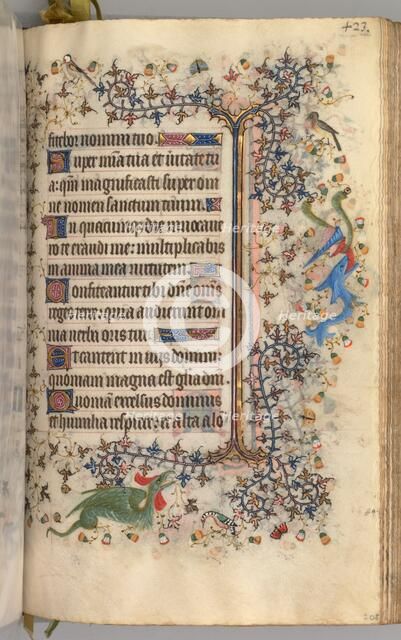 423.
fitebor nomini tuo.
Super mīa tua et uītate tu
a: qm̄ magnificasti super om
ne nomen sanctum tuum.
In quacumqꝫ die inuocaue
ro te exaudi me: multiplicabis
in anima mea uirtutem.
Confiteantur tibi dn̄e om̄s
reges terre: quia audierunt om
nia uerba oris tui
Et cantent in uiis domini:
quoniam magna est glīa dn̄i.
Quoniam excelsus dominus
et humilia respicit: et alta a lō
Heritage
Images
208